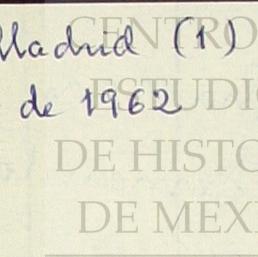 Madrid (1)
de 1962
CENTRO
ESTUDI
DE HISTO
DE MEX